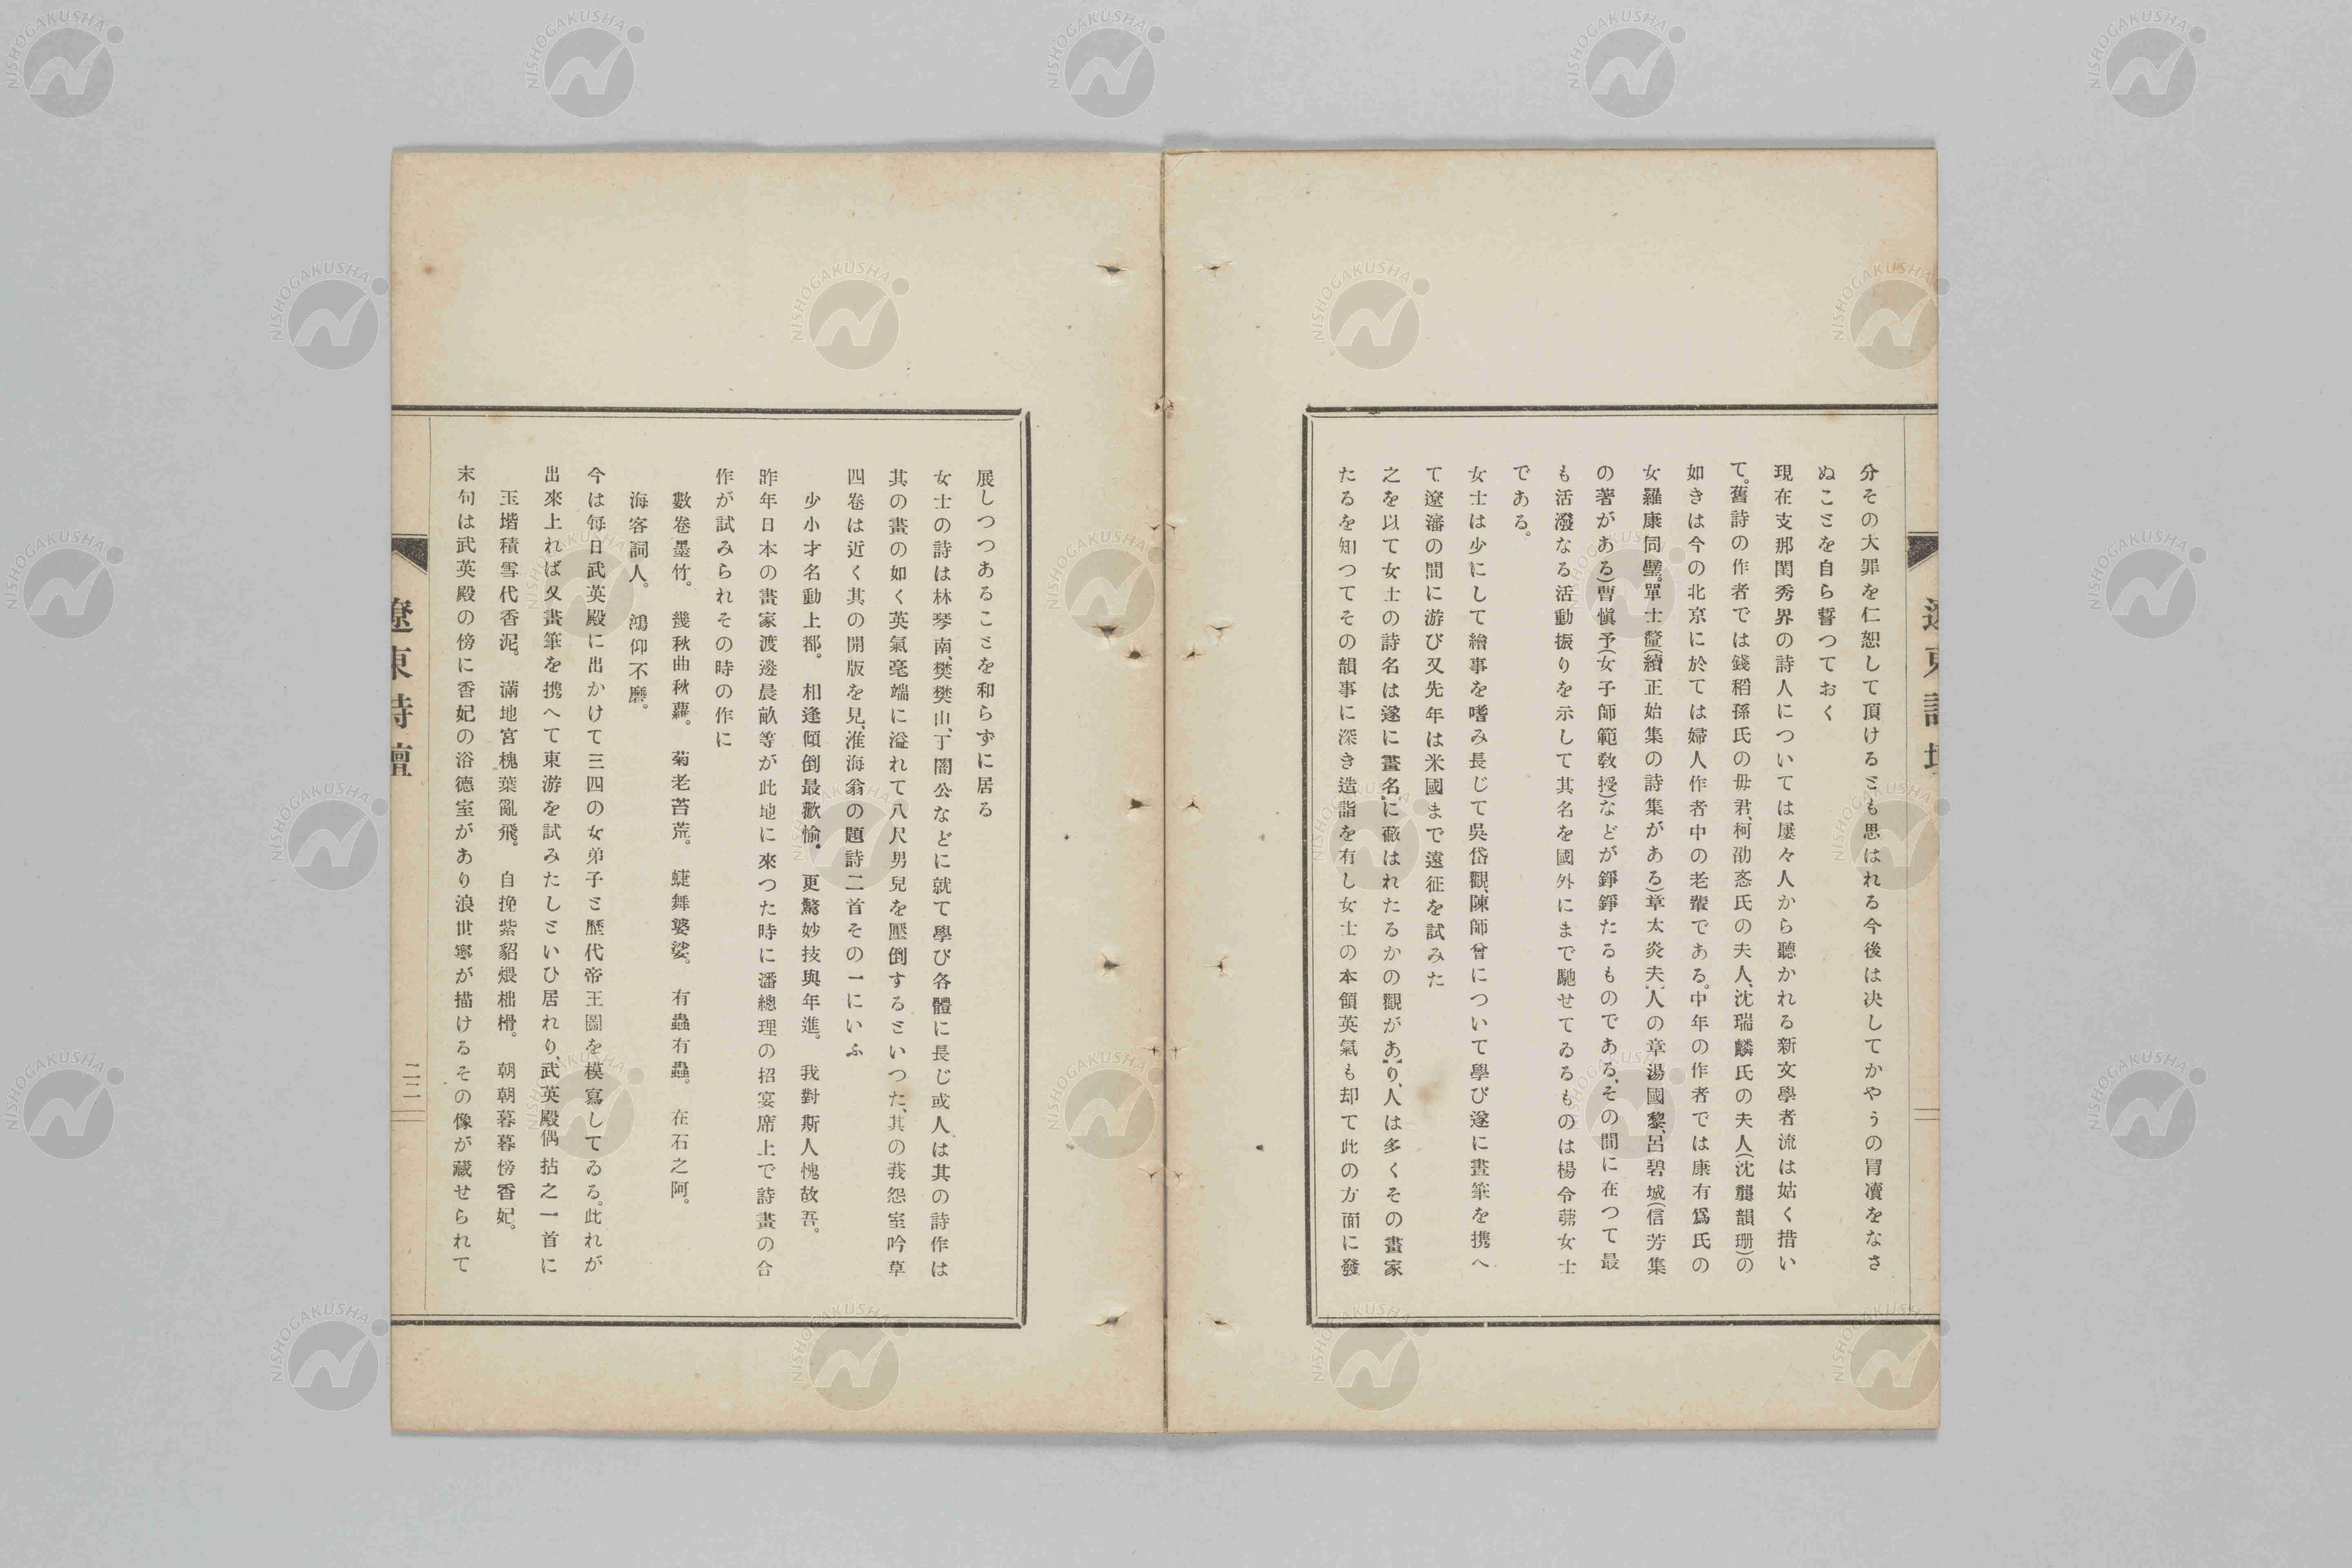 分その大罪を仁恕して頂けるとも思はれる今後は決してかやうの冒凟をなさ
ぬことを自ら誓つておく
現在支那閨秀界の詩人については屡々人から聽かれる新文學者流は姑く措い
て。舊詩の作者では錢稻孫氏の毋君、柯劭忞氏の夫人、沈瑞麟氏の夫人(沈龔韻珊)の
如きは今の北京に於ては婦人作者中の老輩である。中年の作者では康有爲氏の
女羅康同璧。單士釐(續正始集の詩集がある)章太炎夫人の章湯國黎、呂碧城(信芳集
の著がある)曹愼予(女子師範敎授)などが錚錚たるものである、その間に在つて最
も活潑なる活動振りを示して其名を國外にまで馳せてゐるものは楊令茀女士
である。
女士は少にして繪事を嗜み長じて吳岱觀、陳師曾について學び遂に畫筆を携へ
て遼瀋の間に游び又先年は米國まで遠征を試みた
之を以て女士の詩名は遂に畫名に蔽はれたるかの觀があり、人は多くその畫家
たるを知つてその韻事に深き造詣を有し女士の本領英氣も却て此の方面に發
遼東詩壇
展しつつあることを和らずに居る
女士の詩は林琴南、樊樊山、丁闇公などに就て學び各體に長じ或人は其の詩作は
其の畫の如く英氣毫端に溢れて八尺男兒を壓倒するといつた、其の莪怨室吟草
四卷は近く其の開版を見、淮海翁の題詩二首その一にいふ
少小才名動上都。 相逢傾倒最歡愉。 更驚妙技與年進。 我對斯人愧故吾。
昨年日本の畫家渡邊晨畝等が此地に來つた時に潘總理の招宴席上で詩畫の合
作が試みられその時の作に
數卷墨竹。 幾秋曲秋蘿。 菊老苔荒。 蜨舞婆娑。 有蟲有蟲。 在石之阿。
海客詞人。 鴻仰不磨。
今は每日武英殿に出かけて三四の女弟子と歷代帝王圖を模寫してゐる。此れが
出來上れば又畫筆を携へて東游を試みたしといひ居れり、武英殿偶拈之一首に
玉堦積雪代香泥。 滿地宮槐葉亂飛。 自挽紫貂煨榾。 朝朝暮暮傍香妃。
末句は武英殿の傍に香妃の浴德室があり浪世寧が描けるその像が藏せられて
遼東詩壇
二二